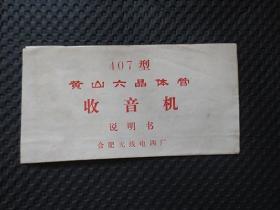 407型
黄山六晶体管
收音机
说明书
合肥无线电四厂